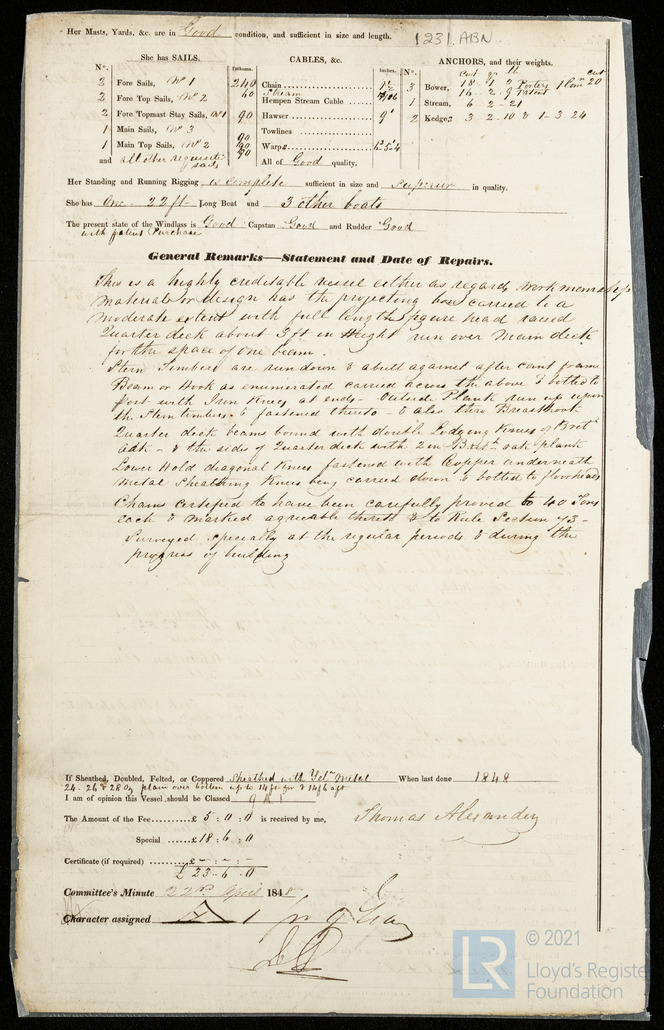 Her Masts, Yards, &c. are in Good condition, and sufficient in size and length.
1231.ABN
She has SAILS.
N°.
3 Fore Sails, N° 1
2 Fore Top Sails, N° 2
2 Fore Topmast Stay Sails, N° 1
1 Main Sails, N° 3
1 Main Top Sails, N° 2
and all other requisite sails
CABLES, &c.
Fathoms. Inches.
Chain 240
Stream
Hempen Stream Cable 60
Hawser 90 9"
Towlines
Warps 90
All of Good quality.
ANCHORS, and their weights.
N°.
3 Bower,
1 Stream, 6 - 2 - 21
2 Kedges 3 - 2 - 10 & 1 - 3 - 24
Her Standing and Running Rigging is complete sufficient in size and superior in quality.
She has One 22 ft Long Boat and 3 other boats
The present state of the Windlass is Good Capstan Good and Rudder Good
with patent Purchase
General Remarks—Statement and Date of Repairs.
This is a highly creditable vessel either as regards workmanship
materials or design has the projecting bow carried to a
moderate extent with full length figure head raised
Quarter deck about 3 ft in Height run over Main deck
for the space of one beam.
Stern Timbers are run down & abutt against after cant frame
Beam or Hook as enumerated carried across the above & botted to
Post with Iron Knees at ends - Outside Plank run up upon
the Stern timbers & fastened thereto - & also thro Breasthook
Quarter deck beams bound with double Lodging Knees of Brit
oak - & the sides of Quarter deck with 2 in Brit oak plank
Lower Hold diagonal Knees fastened with Copper underneath
metal Sheathing Knees being carried down & botted to floorheads
Chains certified to have been carefully proved to 40 Tons
each & marked agreeable thereto & to Rule Section 73 -
Surveyed specially at the regular periods & during the
progress of building
If Sheathed, Doubled, Felted, or Coppered Sheathed with Yel Metal When last done 1848
24. 26 & 28 Oz plain over bottom up to 14 ft fwd & 14 ft 6 aft
I am of opinion this Vessel should be Classed 9 A 1
The Amount of the Fee......£ 5 : 0 : 0 is received by me, Thomas Alexander
Special ......£ 18 : 6 : 0
Certificate (if required) .........£ - : - : -
£ 23 - 6 - 0
Committee's Minute 22nd April 1848
Character assigned A 1
© 2021
LR
Lloyd's Register
Foundation